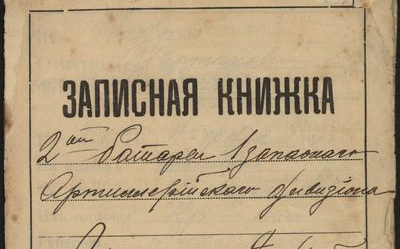 ЗАПИСНАЯ КНИЖКА
2ой батареи 1 запаснаго
Артиллерійскаго дивизіона